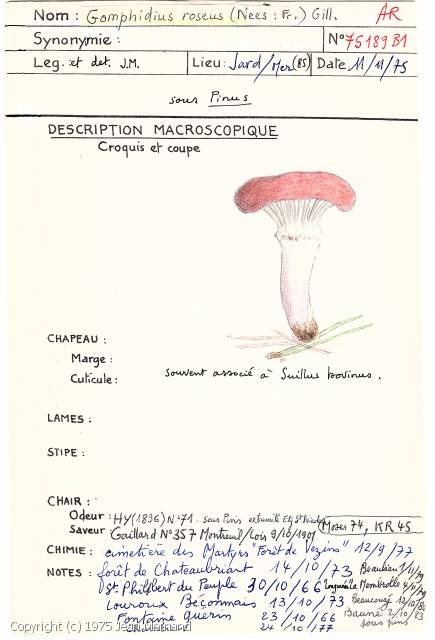 Nom : Gomphidius roseus (Nees : Fr.) Gill. AR
Synonymie : N° 75189B1
Leg. et det. J.M. Lieu : Jard/Mer (85) Date 11/11/75
sous Pinus
DESCRIPTION MACROSCOPIQUE
Croquis et coupe
CHAPEAU :
Marge :
Cuticule : souvent associé à Suillus bovinus.
LAMES :
STIPE :
CHAIR :
Odeur : HY (1896) N° 71. sous Pins extremité Etg St Nicolas
Saveur Gaillard N° 357 Montreuil/Loir 9/10/1901 Moser 74, KR 45
CHIMIE : cimetière des Martyrs "Forêt de Vezins" 12/9/77
NOTES : forêt de Chateaubriant 14/10/73 Beaulieu 1/11/79
St. Philbert du Peuple 30/10/66 la Membrolle
Louroux Béconnais 13/10/73 Beaucouzé 12/10/80
Fontaine Guerin 23/10/66 Bauné 2/10/83
24/10/77 sous pins
Copyright (c) 1975 Jean Mornand